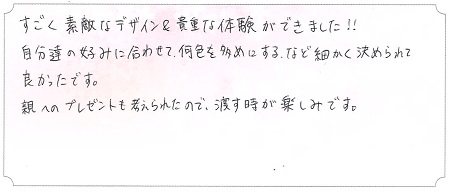 すごく素敵なデザイン&貴重な体験ができました!!
自分達の好みに合わせて、何色を多めにする、など細かく決められて
良かったです。
親へのプレゼントも考えられたので、渡す時が楽しみです。